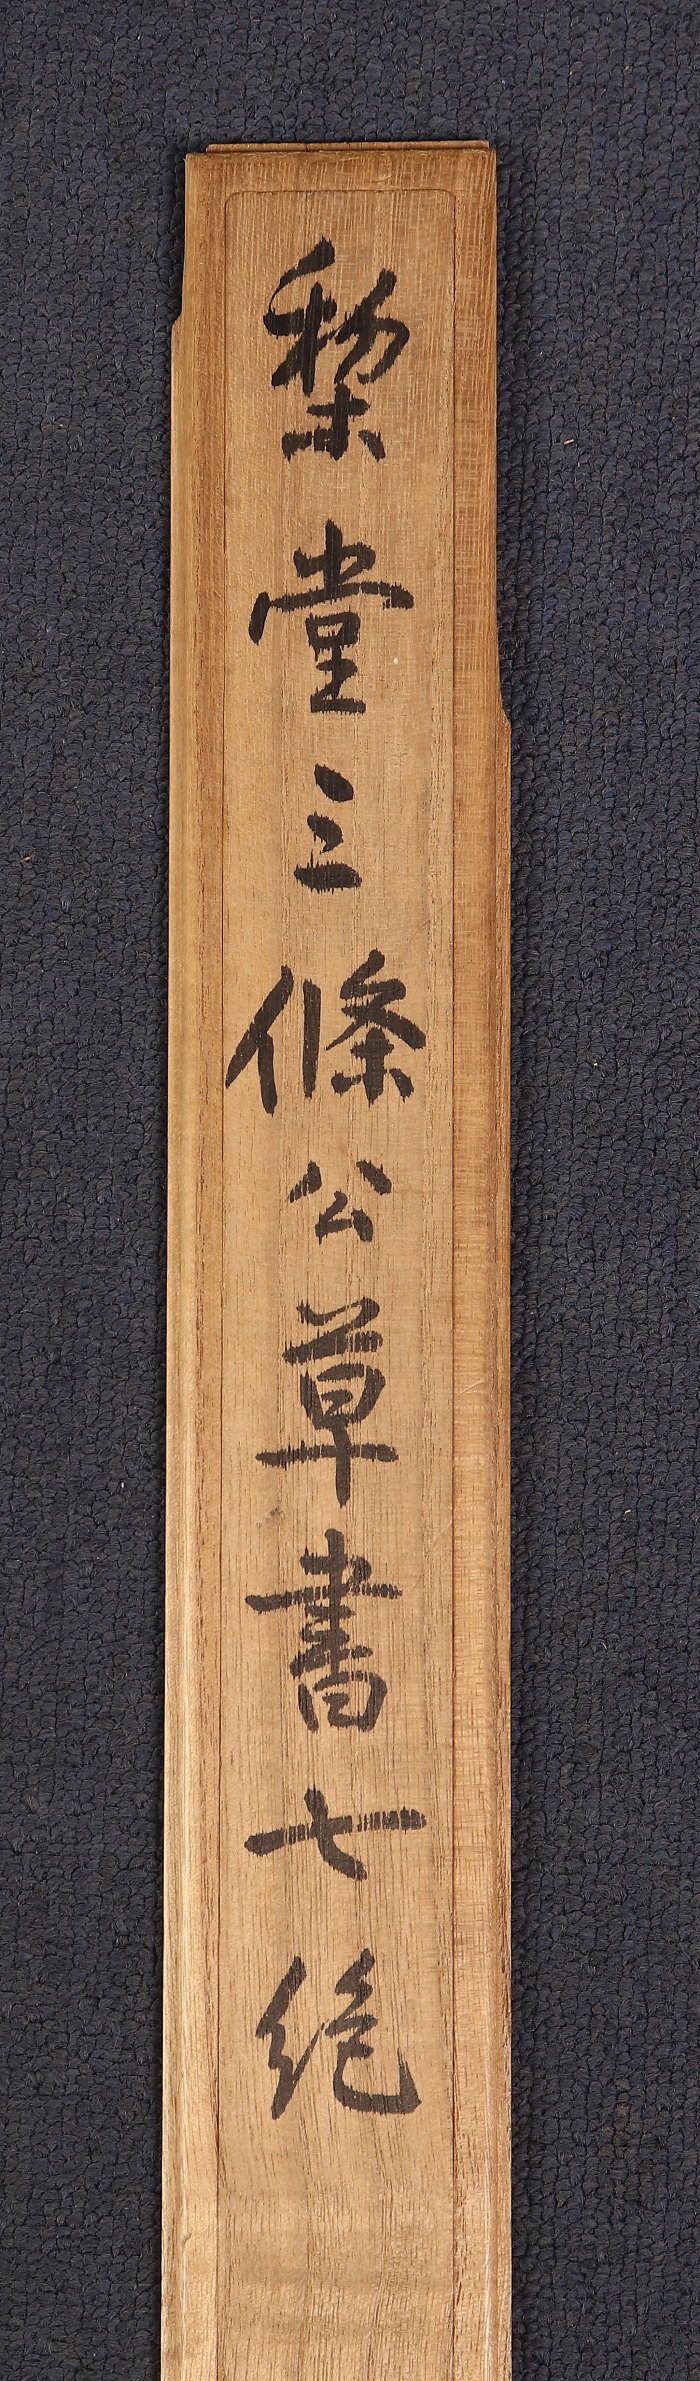 梨堂三條公草書七絶